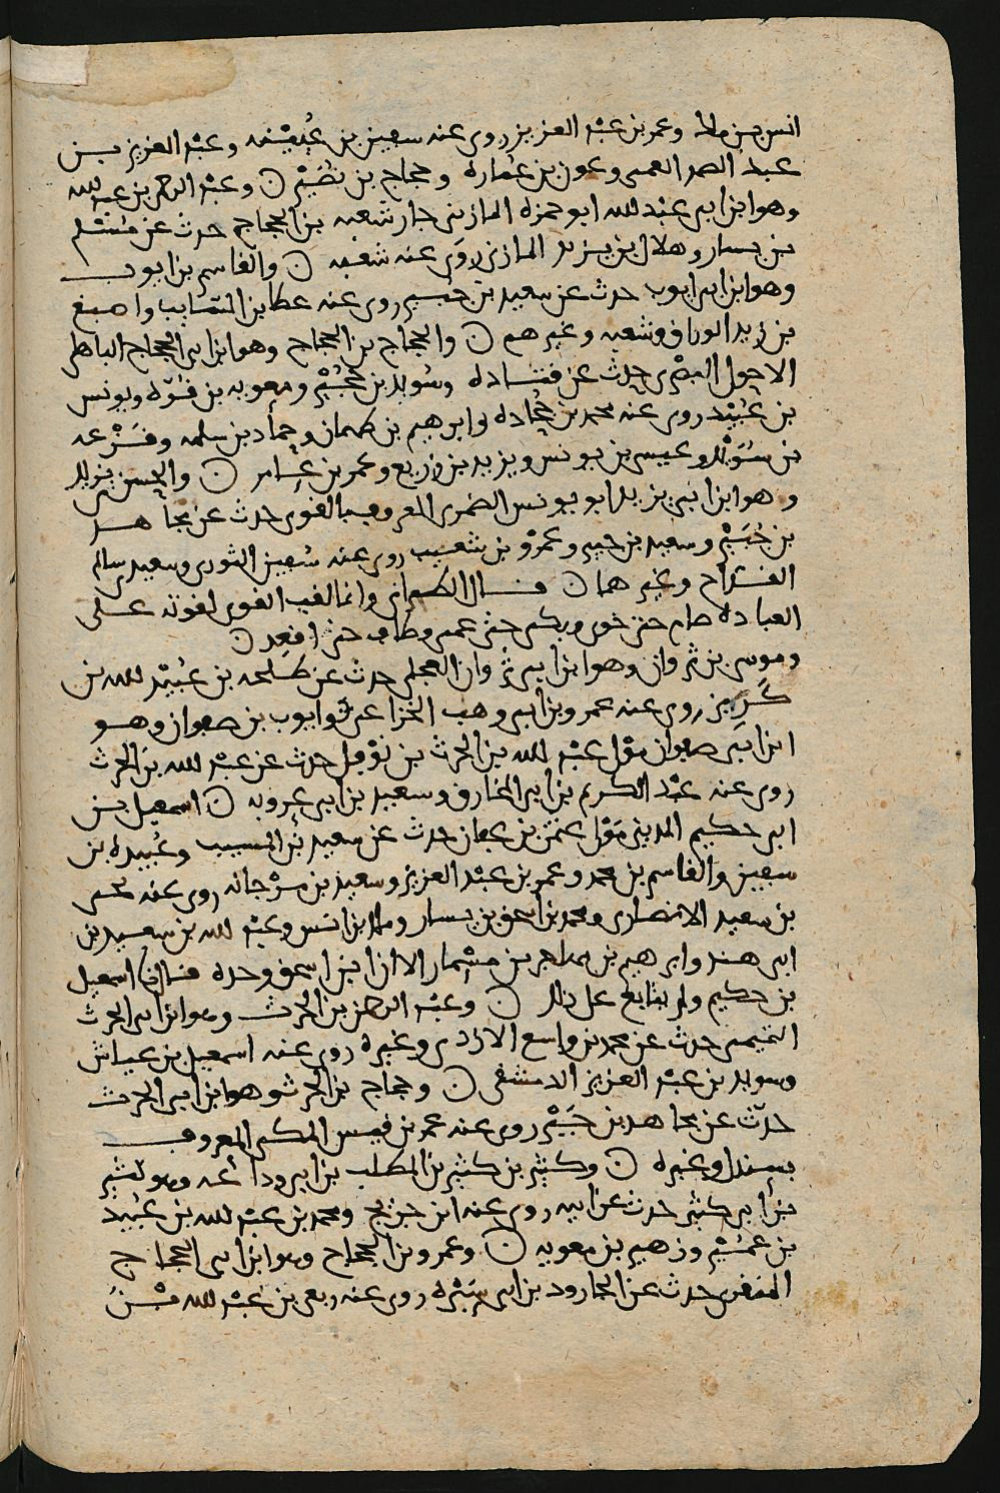 انس بن ملك وعمر بن عبد العزيز روى عنه سفين بن عُيَيْنه وعبد العزيز بن
عبد الصمد العمى وعون بن عُماره وحجاج بن نُصَيْر ن وعبد الرحمن بن عبد الله
وهو ابن ابى عبد الله ابو حمزه المازنى جار شعبه بن الحجاج حدث عن مُسْلم
بن يسار وهلال بن يزيد المازنى رَوَى عنه شعبه ن والقاسم بن ايوب
وهو ابن ابى ايوب حدث عن سعيد بن جُبير روى عنه عطا بن السَّايب واصبغ
بن زيد الوراق وشعبه وغيرهم ن والحجاج بن الحجاج وهو ابن ابى الحجاج الباهلى
الاحول البَصْرى حدث عن قتاده وسُويد بن حُجَيْر ومعويه بن قُرَّه ويونس
بن عُبَيْد روى عنه محمد بن جُحاده وابرهيم بن طهمان وحماد بن سلمه وقَزَعه
بن سُوَيْد وعيسى بن يونس ويزيد بن زريع وعمر بن عامر ن والحسن بن يزيد
وهو ابن ابى يزيد ابو يونس الضمرى المعروف بالقوى حدث عن مجاهد
بن جُبَيْر وسعيد بن جبير وعمرو بن شعيب روى عنه سُفين الثورى وسعيد بن سالم
القَدَّاح وغيرهما ن قال الطبرانى وانما لقب القوى لقوته على
العباده صام حتى خوى وبكى حتى عمى وطاف حتى اقعد ن
وموسى بن ثروان وهو ابن ابى ثروان العجلى حدث عن طلحه بن عُبَيْد الله بن
كَرِيز روى عنه عمرو بن ابى وهب الخزاعى ن وايوب بن صفوان وهو
ابن ابى صفوان مَوْلى عبد الله بن الحرث بن نَوْفل حدث عن عبد الله بن الحرث
روى عنه عبْد الكريم بن ابى المخارق وسعيد بن ابى عروبه ن اسمعيل بن
ابى حكيم المدينى مَوْلى عثمن بن عفان حدث عن سعيد بن المسيب وعُبيده بن
سفين والقاسم بن محمد وعمر بن عبْد العزيز وسعيد بن مَرْجانه روى عنه يحيى
بن سعيد الانصارى ومحمد بن اسحق بن يسار وملك بن انس وعبد الله بن سعيد بن
ابى هند وابرهيم بن مهاجر بن مِسْمار الا ان ابن اسحق وحده قال اسمعيل
بن حكيم ولم يتابع على ذلك ن وعبد الرحمن بن الحرث وهو ابن ابى الحرث
التميمى حدث عن محمد بن واسع الازدى وغيره روى عنه اسمعيل بن عياش
وسويد بن عبد العزيز الدمشقى ن وحجاج بن الحرث وهو ابن ابى الحرث
حدّث عن مجاهد بن جَبْر روى عنه عمر بن قيس المكى المعروف
بسندل وغيره ن وكثير بن كثير بن المطلب بن ابى وداعه وهو كثير
بن ابى كثير حدث عن ابيه روى عنه ابن جريج ومحمد بن عبْد الله بن عُبَيْد
بن عُمَيْر وزهير بن معويه ن وعمرو بن الحجاج وهو ابن ابى الحجاج
المنقرى حدث عن الجارود بن ابى سَبْره روى عنه ربعى بن عبْد الله بْن